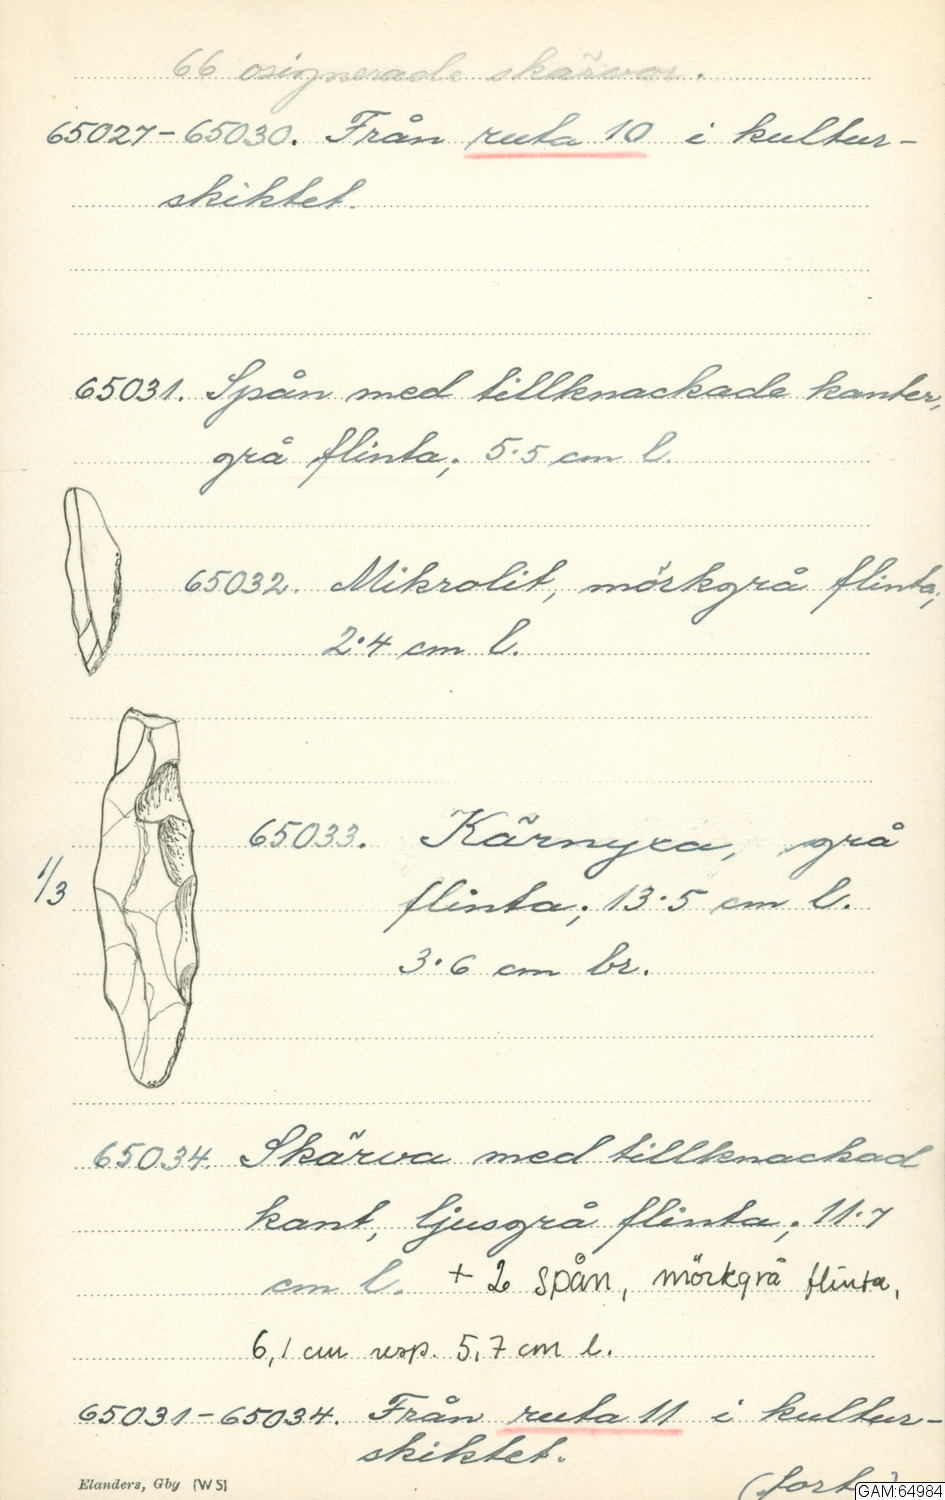 66 osignerade skärvor.
65027-65030. Från ruta 10 i kultur-
skiktet.
65031. Spån med tillknackade kanter,
grå flinta; 5.5 cm l.
65032. Mikrolit, mörkgrå flinta;
2.4 cm l.
65033. Kärnyxa, grå
1/3
flinta; 13.5 cm l.
3.6 cm br.
65034. Skärva med tillknackad
kant, ljusgrå flinta; 11.7
cm l. + 2 spån, mörkgrå flinta,
6,1 cm resp. 5,7 cm l.
65031-65034. Från ruta 11 i kultur-
skiktet.
(forts.)
Elanders, Gby (WS)
GAM:64984